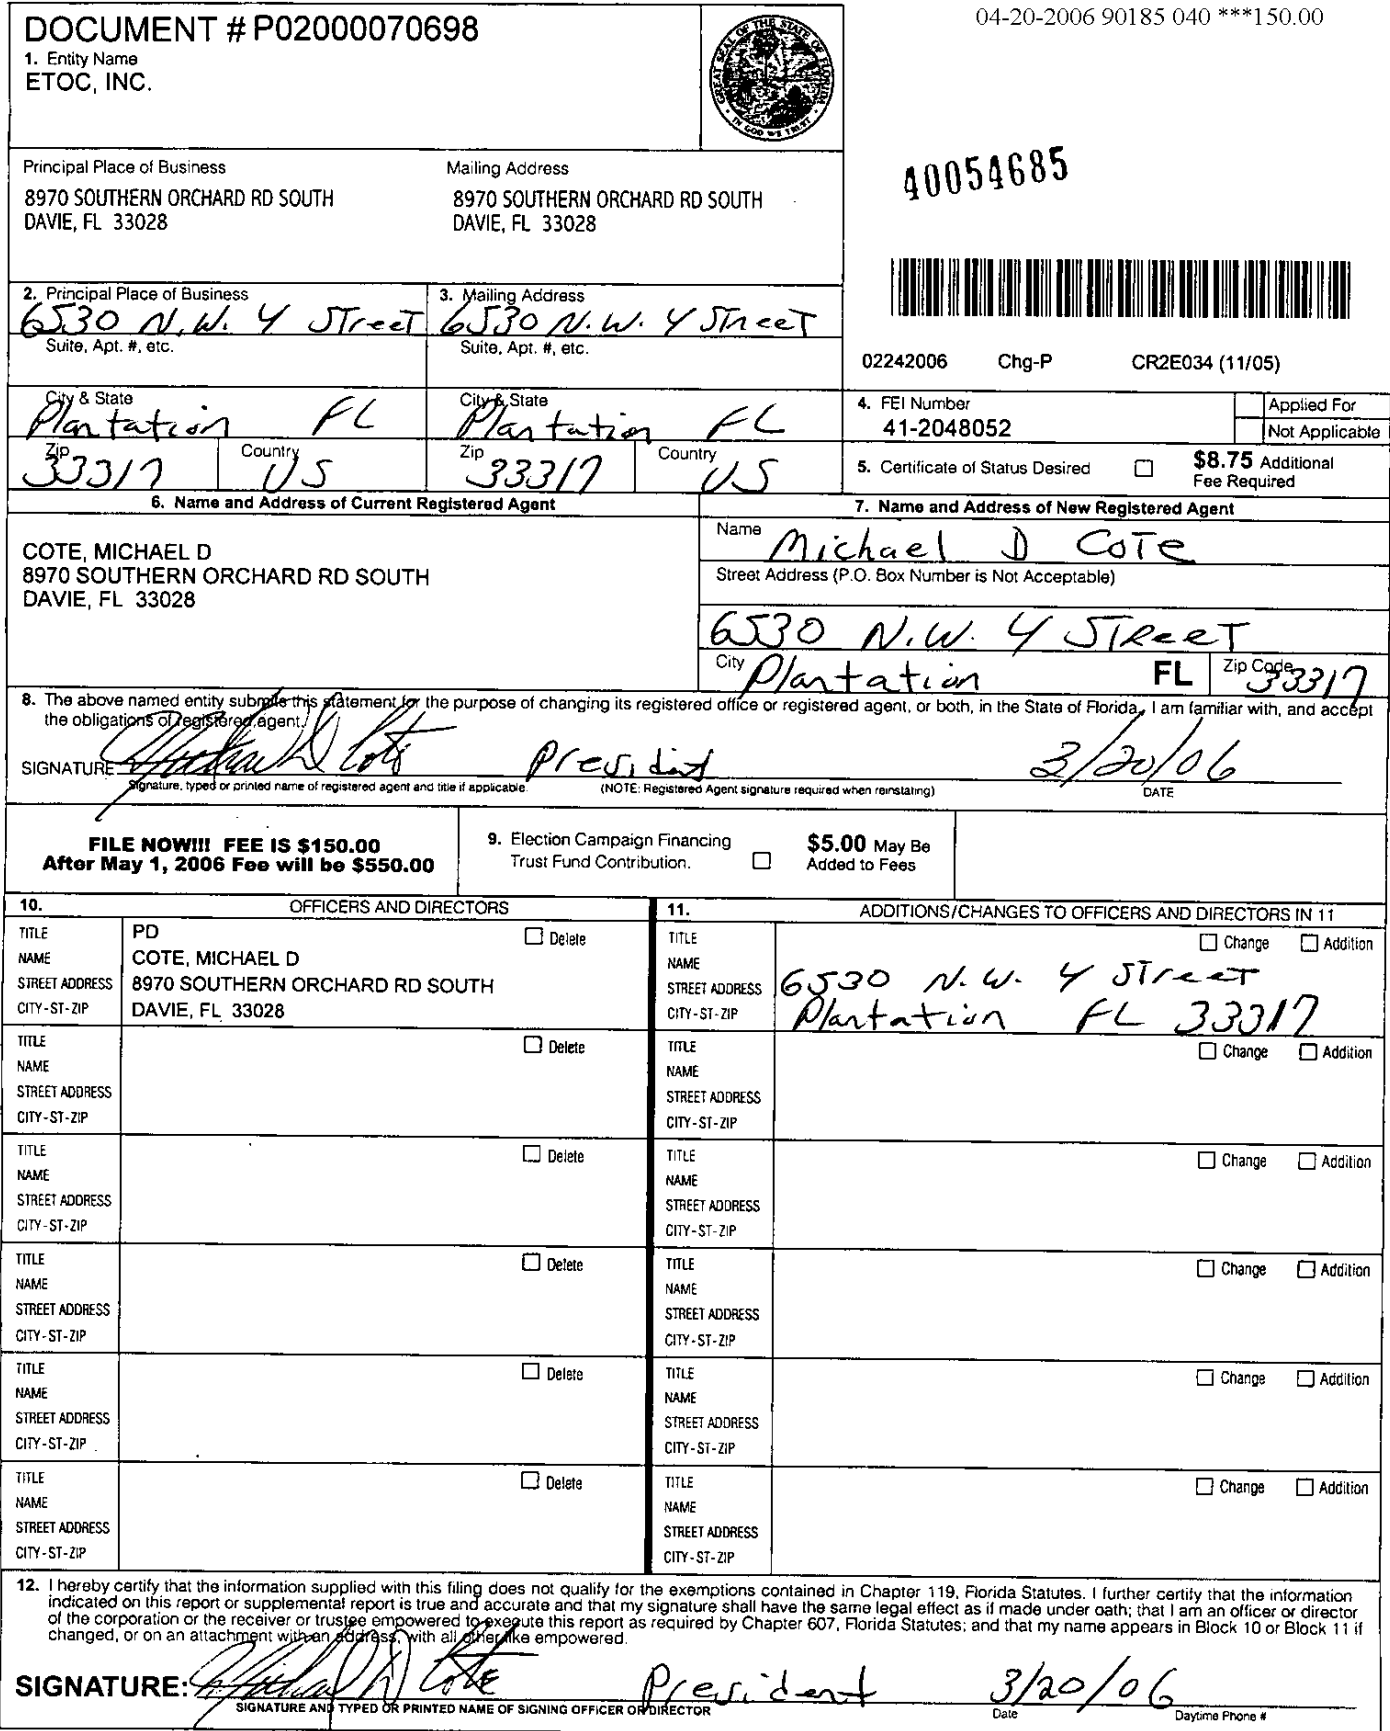 04-20-2006 90185 040 ***150.00
DOCUMENT # P02000070698
1. Entity Name
ETOC, INC.
GREAT SEAL OF THE STATE OF FLORIDA
IN GOD WE TRUST
Principal Place of Business
8970 SOUTHERN ORCHARD RD SOUTH
DAVIE, FL 33028
Mailing Address
8970 SOUTHERN ORCHARD RD SOUTH
DAVIE, FL 33028
40054685
2. Principal Place of Business
6530 N.W. 4 Street
Suite, Apt. #, etc.
City & State
Plantation FL
Zip
33317
Country
US
3. Mailing Address
6530 N.W. 4 Street
Suite, Apt. #, etc.
City & State
Plantation FL
Zip
33317
Country
US
02242006 Chg-P CR2E034 (11/05)
4. FEI Number
41-2048052
Applied For
Not Applicable
5. Certificate of Status Desired
$8.75 Additional
Fee Required
6. Name and Address of Current Registered Agent
COTE, MICHAEL D
8970 SOUTHERN ORCHARD RD SOUTH
DAVIE, FL 33028
7. Name and Address of New Registered Agent
Name
Michael D Cote
Street Address (P.O. Box Number is Not Acceptable)
6530 N.W. 4 Street
City
Plantation
FL
Zip Code
33317
8. The above named entity submits this statement for the purpose of changing its registered office or registered agent, or both, in the State of Florida. I am familiar with, and accept
the obligations of registered agent.
SIGNATURE Michael D Cote President 3/20/06
Signature, typed or printed name of registered agent and title if applicable. (NOTE: Registered Agent signature required when reinstating) DATE
FILE NOW!!! FEE IS $150.00
After May 1, 2006 Fee will be $550.00
9. Election Campaign Financing
Trust Fund Contribution.
$5.00 May Be
Added to Fees
10. OFFICERS AND DIRECTORS
TITLE PD Delete
NAME COTE, MICHAEL D
STREET ADDRESS 8970 SOUTHERN ORCHARD RD SOUTH
CITY-ST-ZIP DAVIE, FL 33028
TITLE Delete
NAME
STREET ADDRESS
CITY-ST-ZIP
TITLE Delete
NAME
STREET ADDRESS
CITY-ST-ZIP
TITLE Delete
NAME
STREET ADDRESS
CITY-ST-ZIP
TITLE Delete
NAME
STREET ADDRESS
CITY-ST-ZIP
TITLE Delete
NAME
STREET ADDRESS
CITY-ST-ZIP
11. ADDITIONS/CHANGES TO OFFICERS AND DIRECTORS IN 11
TITLE Change Addition
NAME
STREET ADDRESS 6530 N.W. 4 Street
CITY-ST-ZIP Plantation FL 33317
TITLE Change Addition
NAME
STREET ADDRESS
CITY-ST-ZIP
TITLE Change Addition
NAME
STREET ADDRESS
CITY-ST-ZIP
TITLE Change Addition
NAME
STREET ADDRESS
CITY-ST-ZIP
TITLE Change Addition
NAME
STREET ADDRESS
CITY-ST-ZIP
TITLE Change Addition
NAME
STREET ADDRESS
CITY-ST-ZIP
12. I hereby certify that the information supplied with this filing does not qualify for the exemptions contained in Chapter 119, Florida Statutes. I further certify that the information
indicated on this report or supplemental report is true and accurate and that my signature shall have the same legal effect as if made under oath; that I am an officer or director
of the corporation or the receiver or trustee empowered to execute this report as required by Chapter 607, Florida Statutes; and that my name appears in Block 10 or Block 11 if
changed, or on an attachment with an address, with all other like empowered.
SIGNATURE: Michael D Cote President 3/20/06
SIGNATURE AND TYPED OR PRINTED NAME OF SIGNING OFFICER OR DIRECTOR Date Daytime Phone #